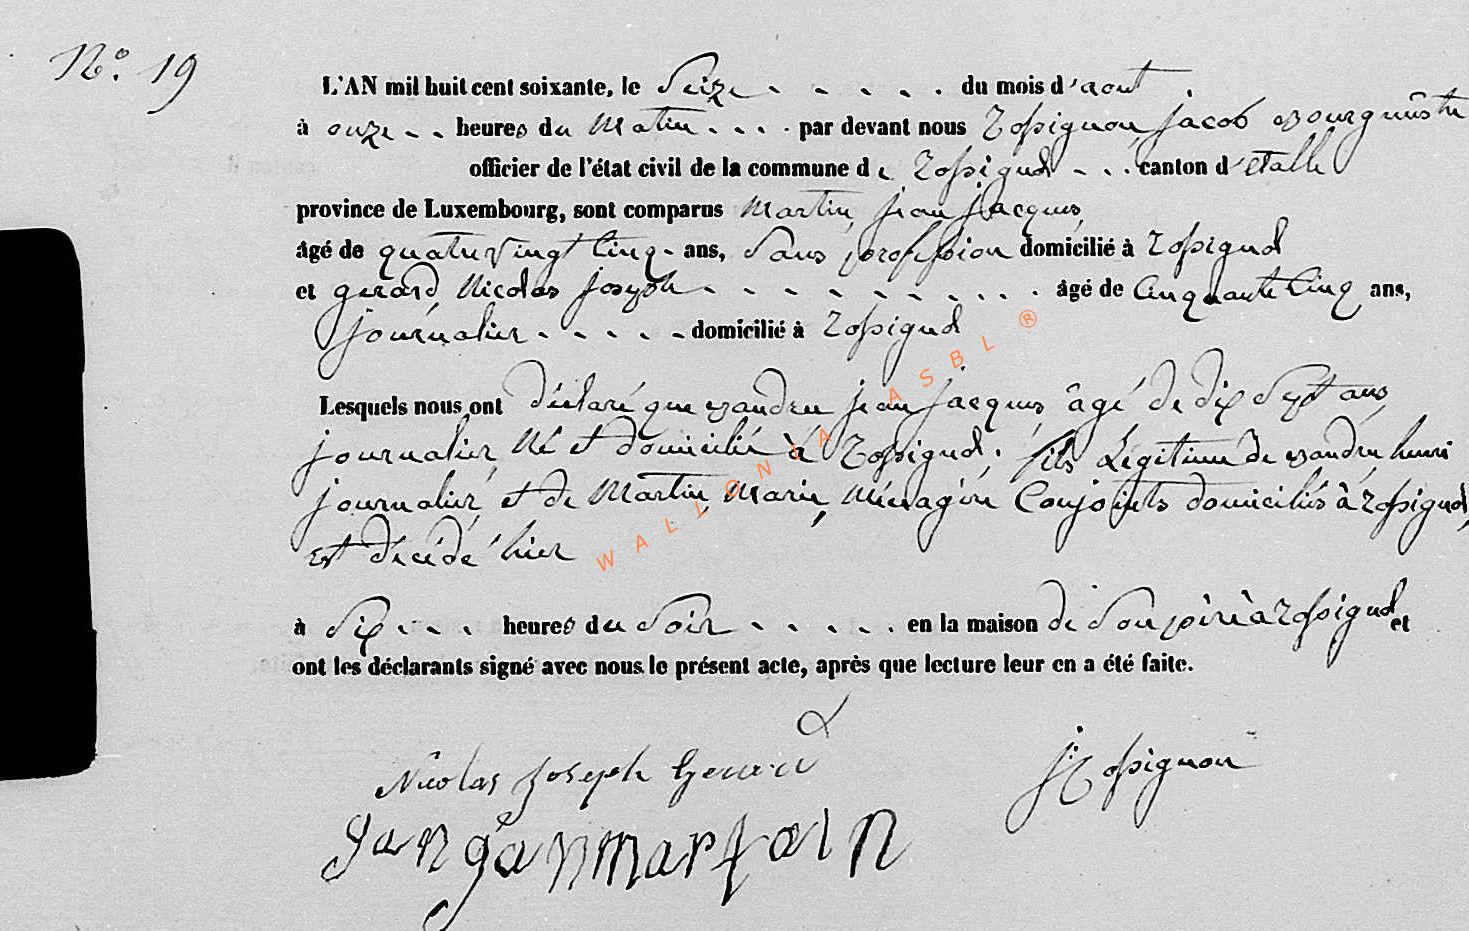 N.º 19
L'AN mil huit cent soixante, le Seize - - - - - du mois d'aout
à onze - - heures du Matin - - - par devant nous Rossignon, jacob Bourgmestre
officier de l'état civil de la commune de Rossignol - - - canton d'étalle
province de Luxembourg, sont comparus Martin, jean jacques,
âgé de quatre vingt Cinq - ans, Sans profession domicilié à Rossignol
et gerard, Nicolas joseph - - - - - - - - - - âgé de Cinquante Cinq ans,
journalier - - - - - domicilié à Rossignol
Lesquels nous ont déclaré que jean jacques, âgé de dix Sept ans,
journalier, Né et domicilié à Rossignol, fils Légitime de henri
journalier, et de Martin, Marie, Ménagère Conjoints domiciliés à Rossignol,
est décédé hier
à Six - - - heures du Soir - - - - - en la maison de Son père à Rossignol et
ont les déclarants signé avec nous le présent acte, après que lecture leur en a été faite.
Nicolas Joseph Gerard
j Rossignon
jan gan martain
WALLONIA ASBL ®